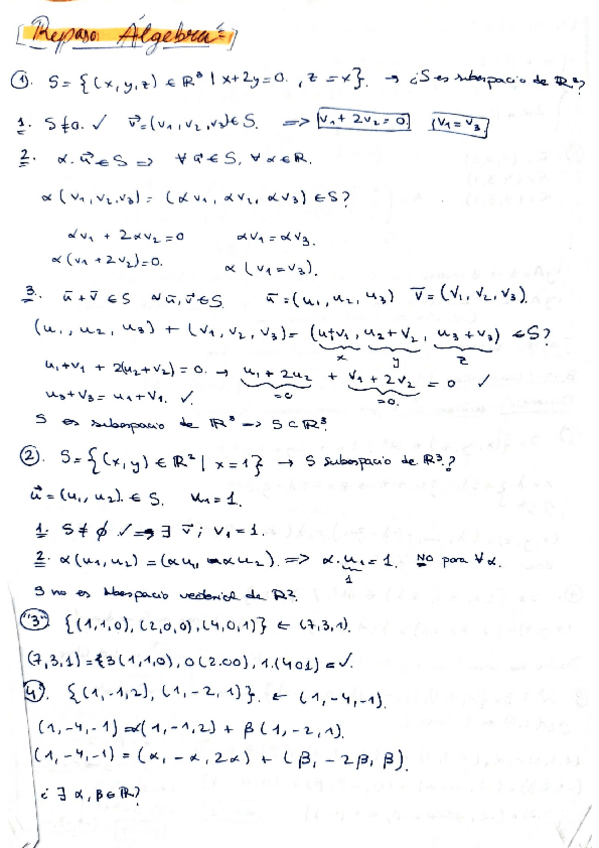 Repaso Álgebra:
①. S = {(x, y, z) ∈ ℝ³ | x+2y=0, z=x}. → ¿S es subespacio de ℝ³?
1. S≠∅. ✓ v⃗=(v₁, v₂, v₃)∈S. => v₁ + 2v₂ = 0. v₁ = v₃.
2. α·u⃗ ∈ S => ∀ u⃗ ∈ S, ∀ α ∈ ℝ.
α(v₁, v₂, v₃) = (αv₁, αv₂, αv₃) ∈ S?
αv₁ + 2αv₂ = 0 αv₁ = αv₃.
α(v₁ + 2v₂) = 0. α(v₁ = v₃).
3. ū + v̄ ∈ S ∀ū, v̄ ∈ S. ū = (u₁, u₂, u₃) v̄ = (v₁, v₂, v₃).
(u₁, u₂, u₃) + (v₁, v₂, v₃) = (u₁+v₁, u₂+v₂, u₃+v₃) ∈ S?
x y z
u₁+v₁ + 2(u₂+v₂) = 0. → u₁ + 2u₂ + v₁ + 2v₂ = 0 ✓
=0 =0.
u₃+v₃ = u₁+v₁. ✓
S es subespacio de ℝ³ => S⊂ℝ³.
②. S = {(x, y) ∈ ℝ² | x = 1} → S subespacio de ℝ³?
u⃗ = (u₁, u₂) ∈ S. u₁ = 1.
1. S ≠ ∅ ✓ => ∃ v⃗; v₁ = 1.
2. α(u₁, u₂) = (αu₁, αu₂). => α·u₁ = 1. NO para ∀α.
1
S no es subespacio vectorial de ℝ².
"3" {(1,1,0), (2,0,0), (4,0,1)} ← (7,3,1).
(7,3,1) = {3(1,1,0), 0(2.00), 1.(401) = ✓.
4. {(1,-1,2), (1,-2,1)}. ← (1,-4,-1).
(1,-4,-1) = α(1,-1,2) + β(1,-2,1).
(1,-4,-1) = (α, -α, 2α) + (β, -2β, β).
¿∃ α, β ∈ ℝ?